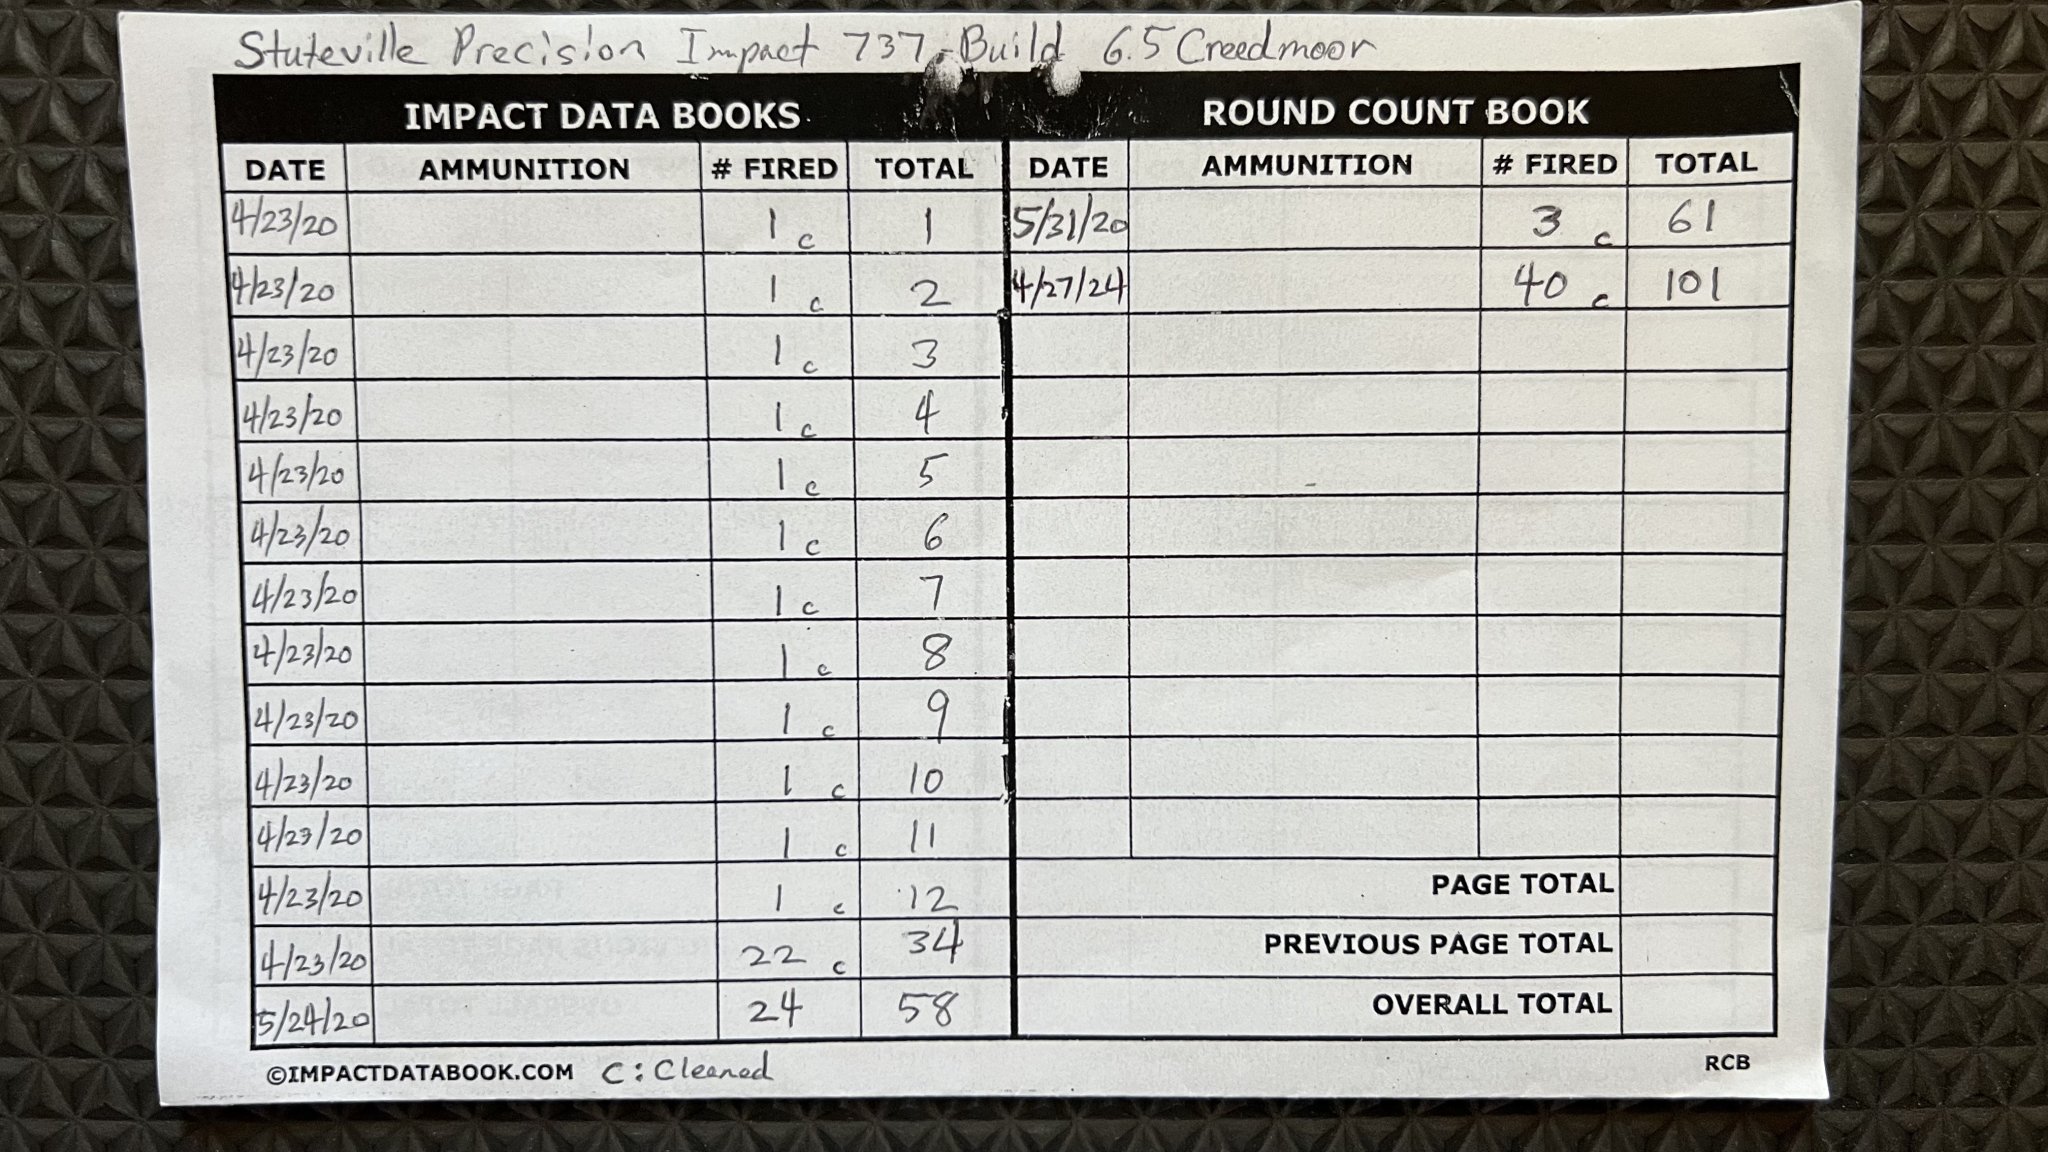 Stuteville Precision Impact 737 Build 6.5 Creedmoor
IMPACT DATA BOOKS ROUND COUNT BOOK
DATE AMMUNITION # FIRED TOTAL DATE AMMUNITION # FIRED TOTAL
4/23/20 1 c 1 5/31/20 3 c 61
4/23/20 1 c 2 4/27/24 40 c 101
4/23/20 1 c 3
4/23/20 1 c 4
4/23/20 1 c 5
4/23/20 1 c 6
4/23/20 1 c 7
4/23/20 1 c 8
4/23/20 1 c 9
4/23/20 1 c 10
4/23/20 1 c 11
4/23/20 1 c 12
4/23/20 22 c 34
5/24/20 24 58
PAGE TOTAL
PREVIOUS PAGE TOTAL
OVERALL TOTAL
©IMPACTDATABOOK.COM C: Cleaned RCB